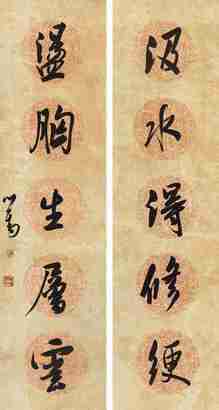 汲水得修绠
盪胸生層雲
心畬